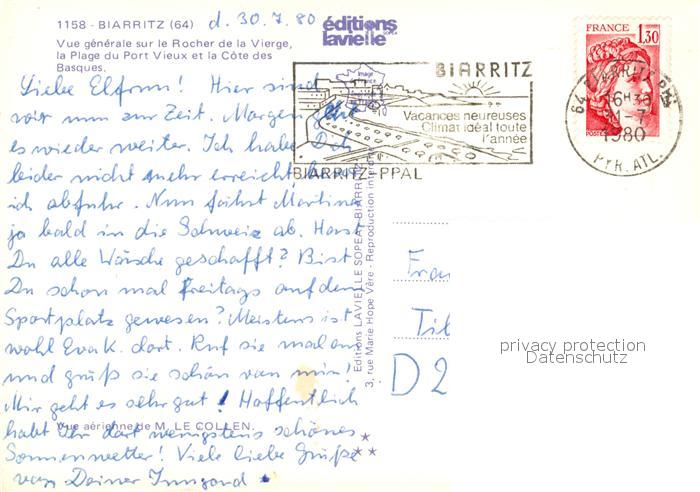 1158 - BIARRITZ (64) d. 30.7.80
Vue générale sur le Rocher de la Vierge,
la Plage du Port Vieux et la Côte des
Basques.
éditions
lavielle
Liebe Elfrun! Hier sind
wir nun zur Zeit. Morgen geht
es wieder weiter. Ich habe Dich
leider nicht mehr erreicht bevor
ich abfuhr. Nun fährt Martina
ja bald in die Schweiz ab. Hast
Du alle Wäsche geschafft? Bist
Du schon mal freitags auf dem
Sportplatz gewesen? Meistens ist
wohl Eva K. dort. Ruf sie mal an
und grüß sie schön von mir!
Mir geht es sehr gut! Hoffentlich
habt Ihr dort wenigstens schönes
Sonnenwetter! Viele liebe Grüße
von Deiner Irmgard
Vue aérienne de M. LE COLLEN.
Editions LAVIELLE SOPEA - BIARRITZ
3, rue Marie Hope Vère - Reproduction
BIARRITZ
Vacances heureuses
Climat idéal toute
l'année
BIARRITZ-PPAL
FRANCE
1,30
POSTES
64 BIARRITZ PPAL
16H30
31-7
1980
PYR. ATL.
Frau
Til
D 2
privacy protection
Datenschutz